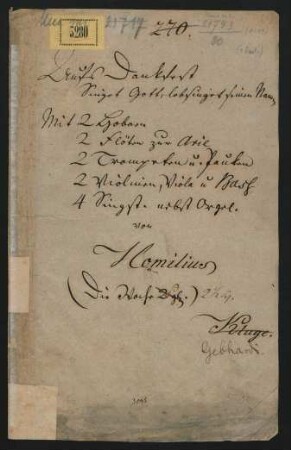 5280
270.
21793
Aufs Dankfest
Singet Gott, lobsinget seinen Nam
Mit 2 Hoboen
2 Flöten zur Arie
2 Trompeten u. Pauken
2 Violinen, Viola u Bass
4 Singst. nebst Orgel.
von
Homilius
(Die Woche
Kluge.
Gebhardi.